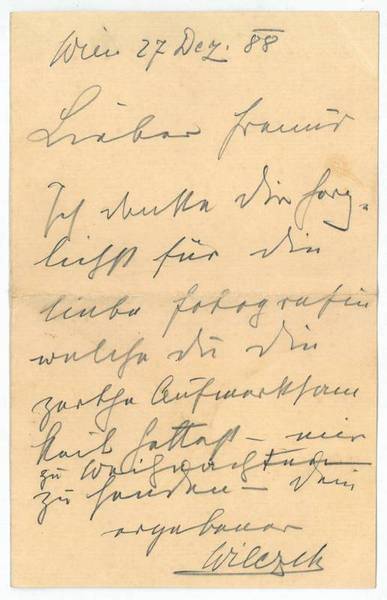 Wien 27 Dez. 88
Lieber Freund
Ich danke dir herz-
lichst für die
liebe Fotografie
welche du die
zarthe Aufmerksam
keit hattest – mir
zu Weihnachten
zu senden – dein
ergebener
Wilczek